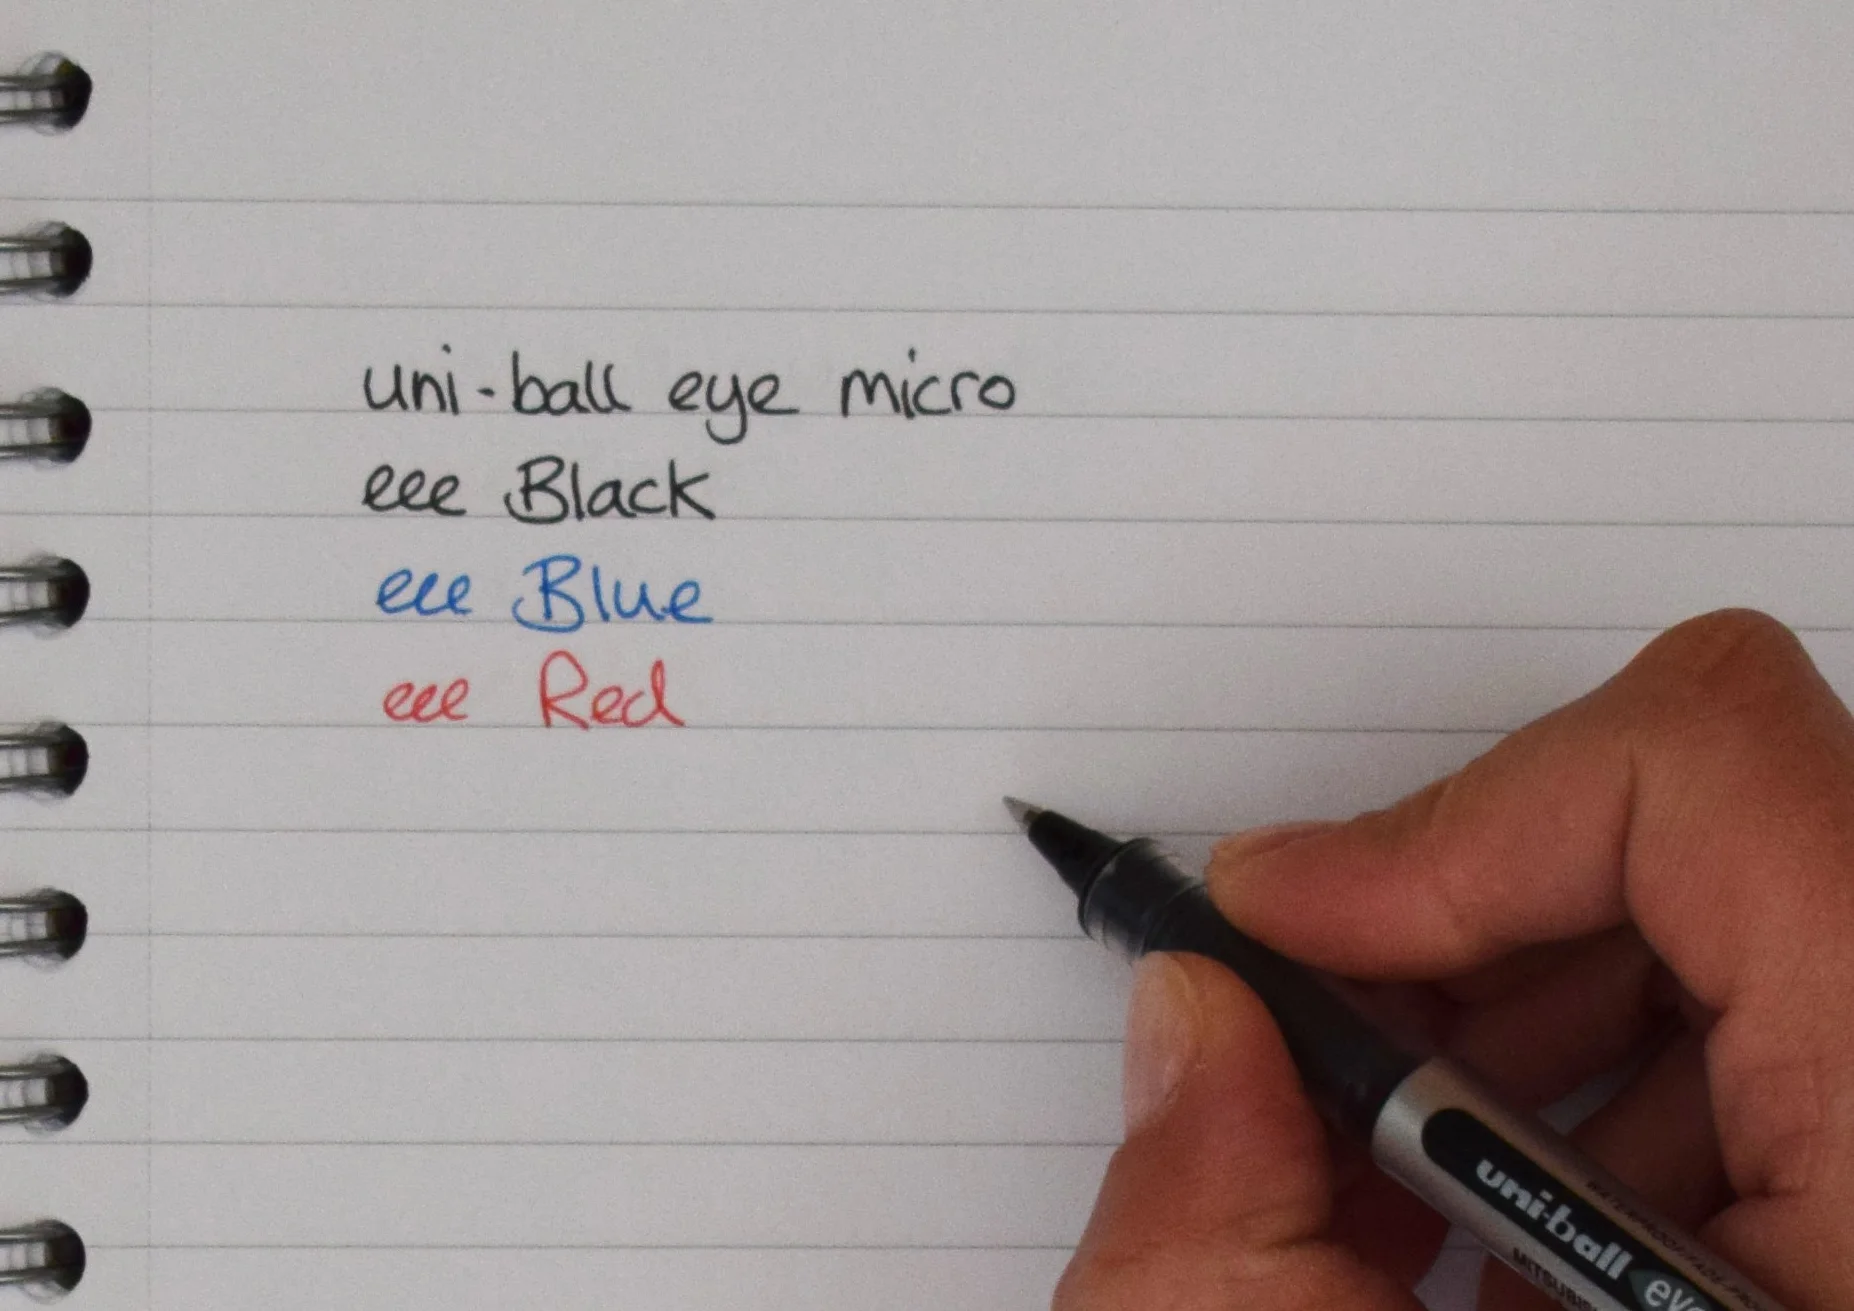 uni-ball eye micro
eee Black
eee Blue
eee Red
uni-ball eye
WATERPROOF/FADE-PROOF